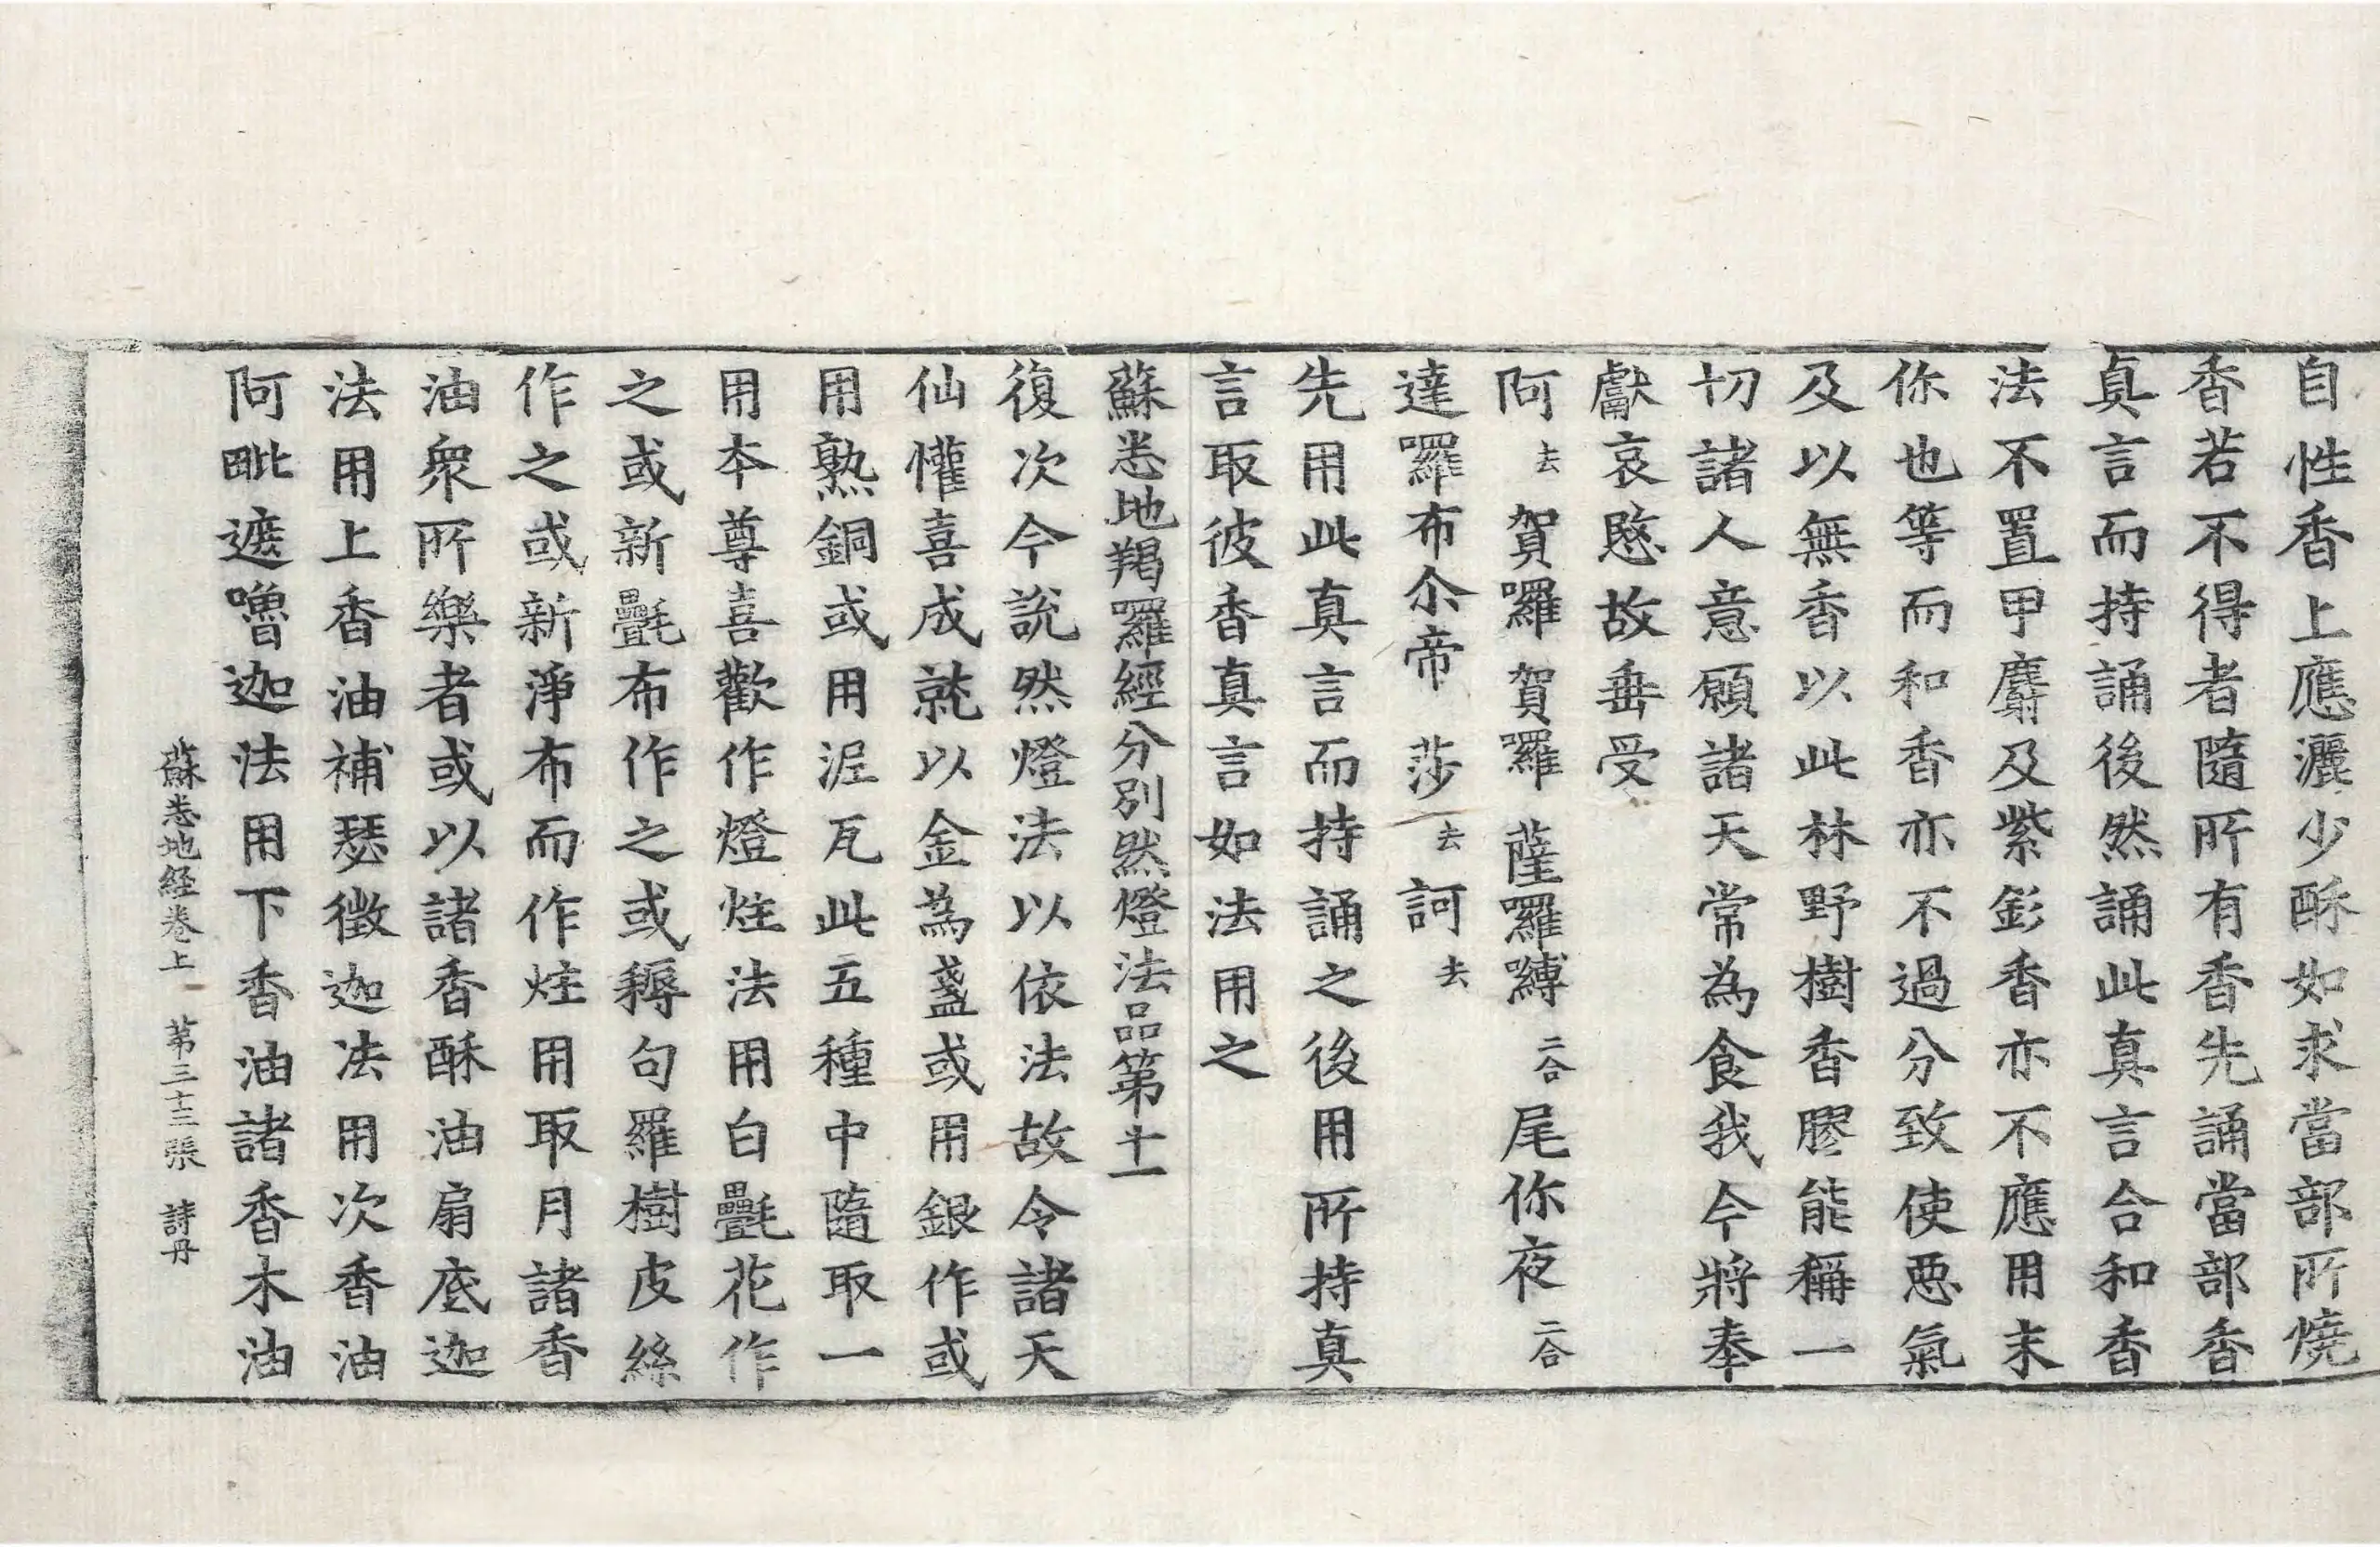 自性香上應灑少酥如求當部所燒
香若不得者隨所有香先誦當部香
真言而持誦後然誦此真言合和香
法不置甲麝及紫釤香亦不應用末
你也等而和香亦不過分致使惡氣
及以無香以此林野樹香膠能稱一
切諸人意願諸天常為食我今將奉
獻哀愍故垂受
阿去賀囉賀囉薩囉嚩二合尾你夜二合
達囉布尒帝莎去訶去
先用此真言而持誦之後用所持真
言取彼香真言如法用之
蘇悉地羯囉經分別然燈法品第十一
復次今說然燈法以依法故令諸天
仙懽喜成就以金為盞或用銀作或
用熟銅或用泥瓦此五種中隨取一
用本尊喜歡作燈炷法用白氎花作
之或新氎布作之或耨句羅樹皮絲
作之或新淨布而作炷用取月諸香
油衆所樂者或以諸香酥油扇底迦
法用上香油補瑟徵迦法用次香油
阿毗遮嚕迦法用下香油諸香木油
蘇悉地経卷上 苐三十三張 詩丹